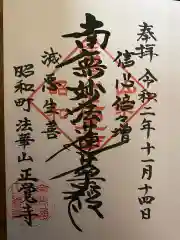 奉拝 令和二年十一月十四日
信力倍々増
南無妙法蓮華経
滅悪生善
昭和町 法華山 正覚寺